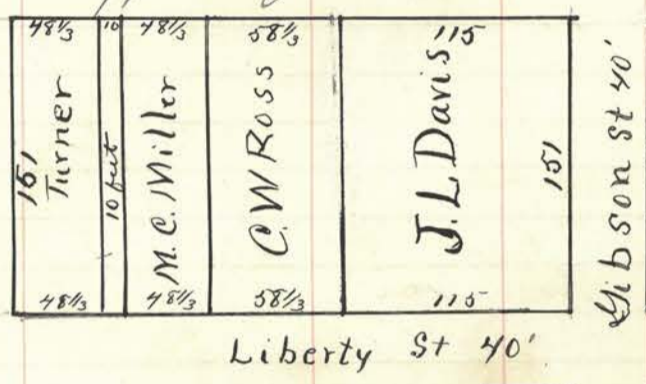 48⅓ 10 48⅓ 58⅓ 115
151
Turner
10 feet
M.C. Miller
C.W Ross
J.L Davis
151
Gibson St 40'
48⅓ 48⅓ 58⅓ 115
Liberty St 40'